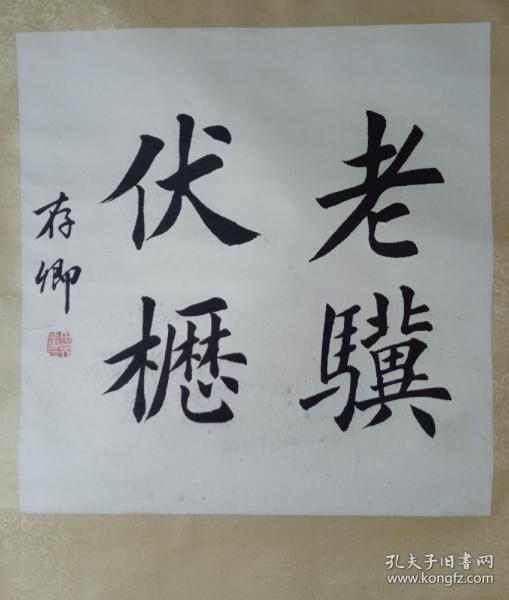 老驥
伏櫪
存卿
孔夫子旧书网
www.kongfz.com